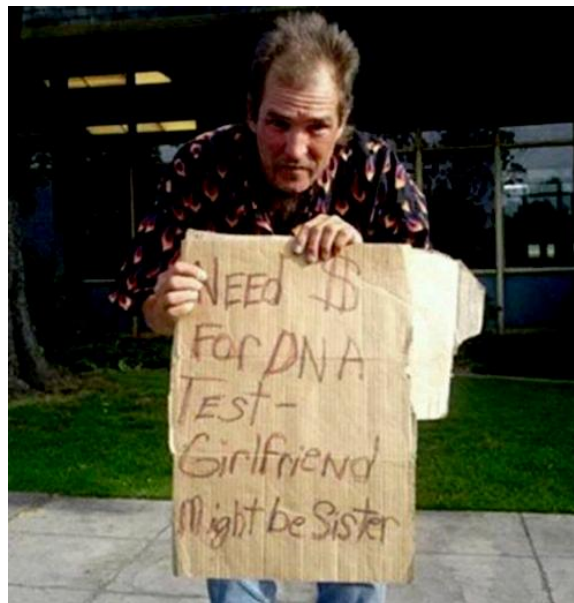 NEEd $
For DNA
TEST-
Girlfriend
Might be Sister